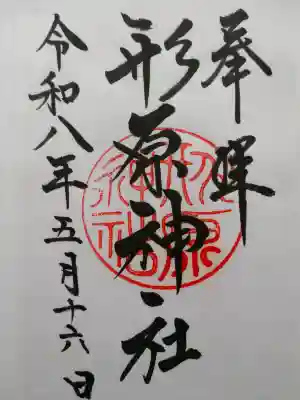 奉拝
形原神社
令和八年五月十六日
形原神社